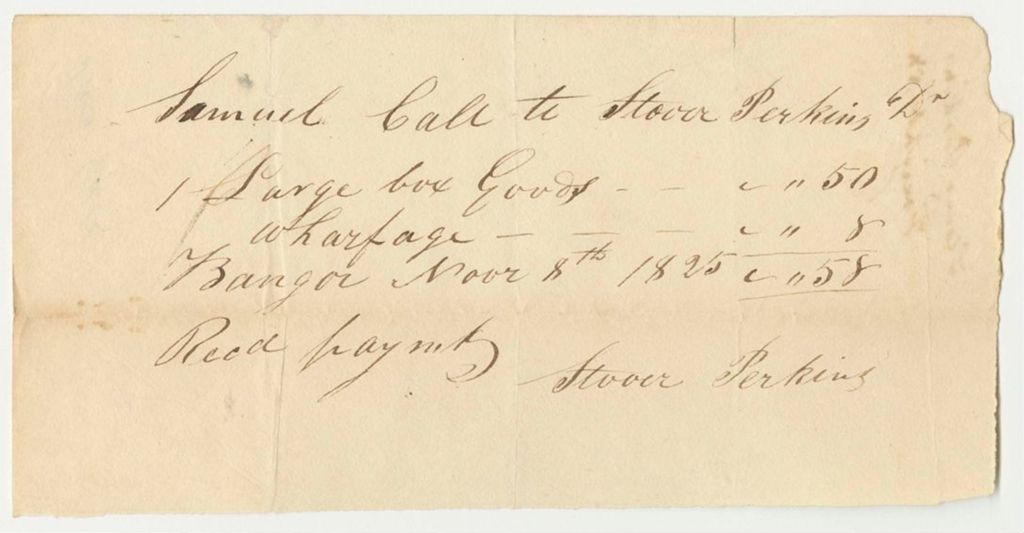 Samuel Call to Stover Perkins Dr
1 Large box Goods - - " 50
Wharfage - - - " 8
Bangor Novr 8th 1825 " 58
Recd paymt
Stover Perkins